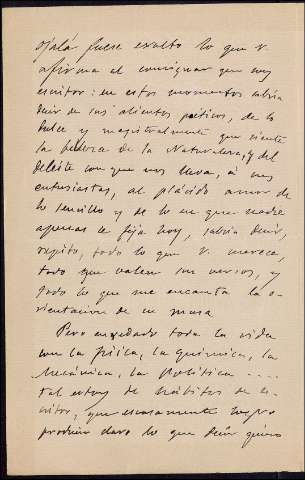 ojalá fuese exacto lo que V.
afirma al consignar que soy
escritor: en estos momentos sabría
decir de sus alientos poéticos, de lo
dulce y magistralmente que siente
la belleza de la Naturaleza, y del
deleite con que nos lleva, á sus
entusiastas, al plácido amor de
lo sencillo y de lo en que nadie
apenas se fija hoy, sabría decir,
repito, todo lo que V. merece,
todo que valen sus versos, y
todo lo que me encanta la o-
rientación de su musa.
Pero enredado toda la vida
con la física, la química, la
Mecánica, la política ....
tal estoy de hábitos de es-
critor, que escasamente logro
producir claro lo que decir quiero